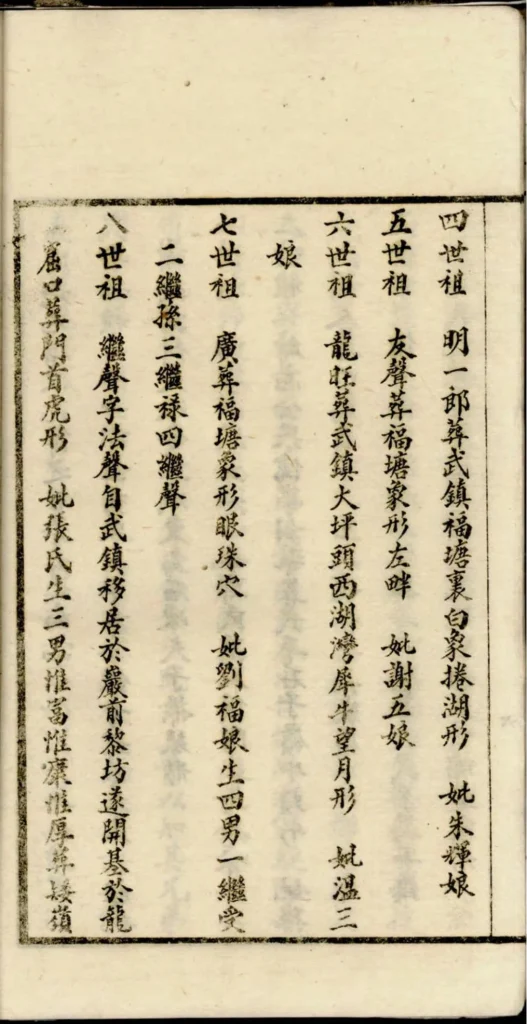 四世祖　明一郎葬武鎮福塘裏白象捲湖形　妣朱輝娘
五世祖　友聲葬福塘象形左畔　妣謝五娘
六世祖　龍旺葬武鎮大坪頭西湖灣犀牛望月形　妣溫三
娘
七世祖　廣葬福塘象形眼珠穴　妣劉福娘生四男一繼受
二繼孫三繼禄四繼聲
八世祖　繼聲字法聲自武鎮移居於巖前黎坊遂開基於龍
窟口葬門首虎形　妣張氏生三男惟富惟康惟厚葬矮嶺